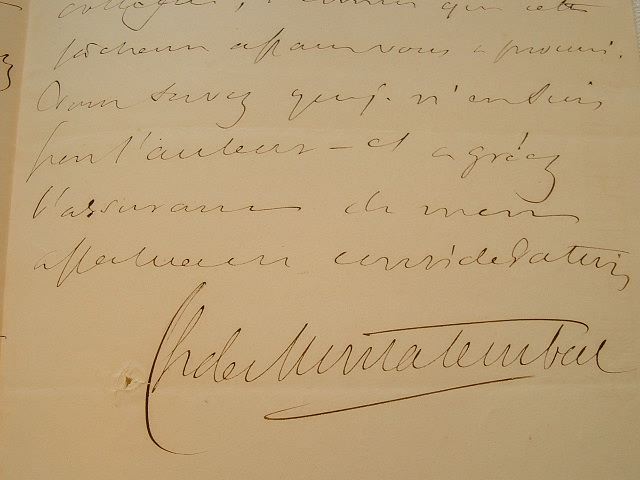 collègues, l'ennui que cette
fâcheuse affaire vous a procuré.
Vous savez que je n'en suis
pas l'auteur – et agréez
l'assurance de mon
affectueuse considération
Ch de Montalembert